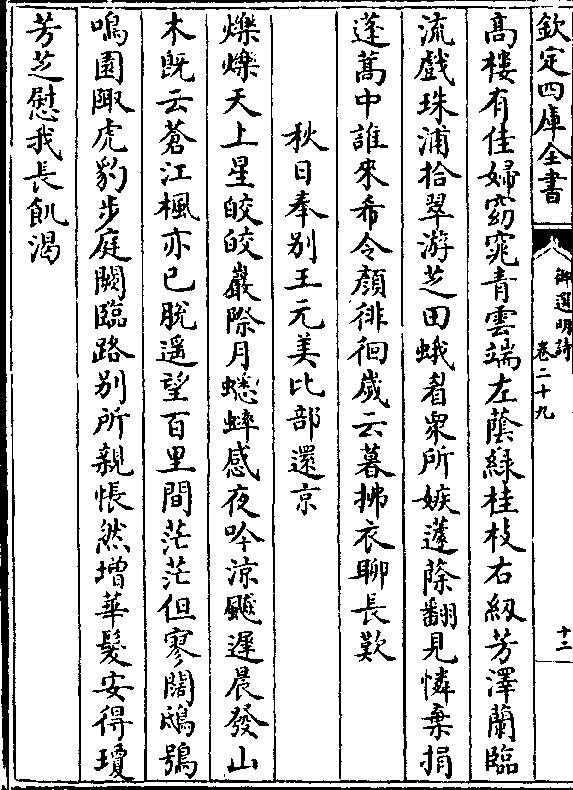 欽定四庫全書
御選明詩
卷二十九
十二
高樓有佳婦窈窕青雲端左蔭緑桂枝右紉芳澤蘭臨
流戲珠浦拾翠游芝田蛾眉衆所嫉蘧蒢翻見憐棄捐
蓬蒿中誰來希令顔徘徊嵗云暮拂衣聊長歎
秋日奉别王元美比部還京
爍爍天上星皎皎巖際月蟋蟀感夜吟涼飈遲晨發山
木既云蒼江楓亦已脱遥望百里間茫茫但寥闊鴟鴞
鳴園陬虎豹步庭闕臨路别所親悵然增華髮安得瓊
芳芝慰我長飢渴